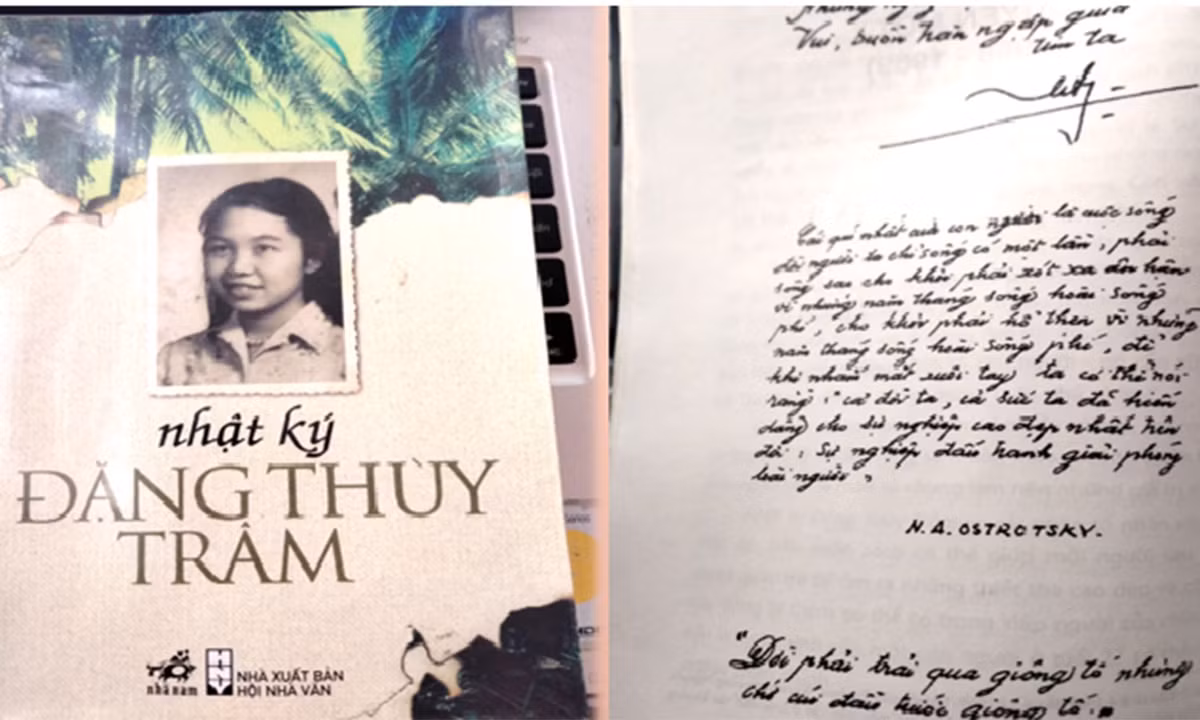 nhật ký
ĐẶNG THÙY
TRÂM
nhã nam
NHÀ XUẤT BẢN
HỘI NHÀ VĂN
Vui, buồn tràn ngập qua
tim ta
Cái quí nhất của con người là cuộc sống
đời người ta chỉ sống có một lần, phải
sống sao cho khỏi phải xót xa ân hận
vì những năm tháng sống hoài sống
phí, cho khỏi phải hổ thẹn vì những
năm tháng sống hoài sống phí, để
khi nhắm mắt xuôi tay ta có thể nói
rằng: cả đời ta, cả sức ta đã hiến
dâng cho sự nghiệp cao đẹp nhất trên
đời, sự nghiệp đấu tranh giải phóng
loài người
N.A. OSTROTSKY.
"Đời phải trải qua giông tố nhưng
chớ cúi đầu trước giông tố."